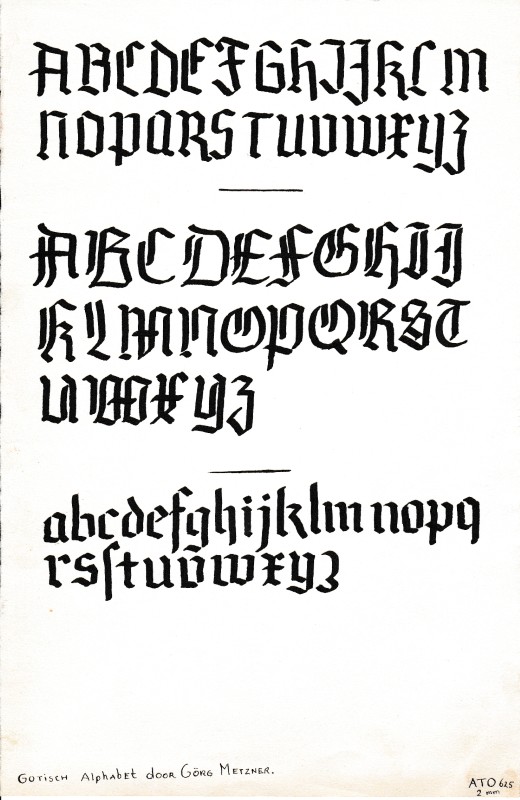 ABCDEFGHIJKLM
NOPQRSTUVWXYZ
ABCDEFGHIJ
KLMNOPQRST
UVWXYZ
abcdefghijklmnopq
rsſtuvwxyz
Gotisch Alphabet door Görg Metzner.
ATO 625
2 mm